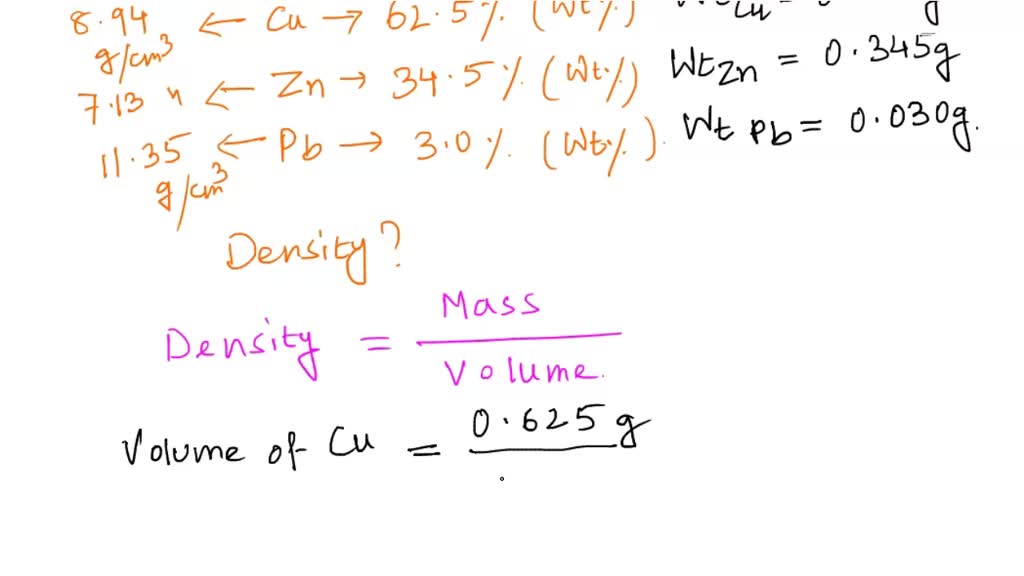 8.94 g/cm³ ← Cu → 62.5% (Wt%)
7.13 " ← Zn → 34.5% (Wt%)
11.35 g/cm³ ← Pb → 3.0% (Wt%).
Wt Zn = 0.345g
Wt Pb = 0.030g.
Density?
Density = Mass / Volume.
Volume of Cu = 0.625 g